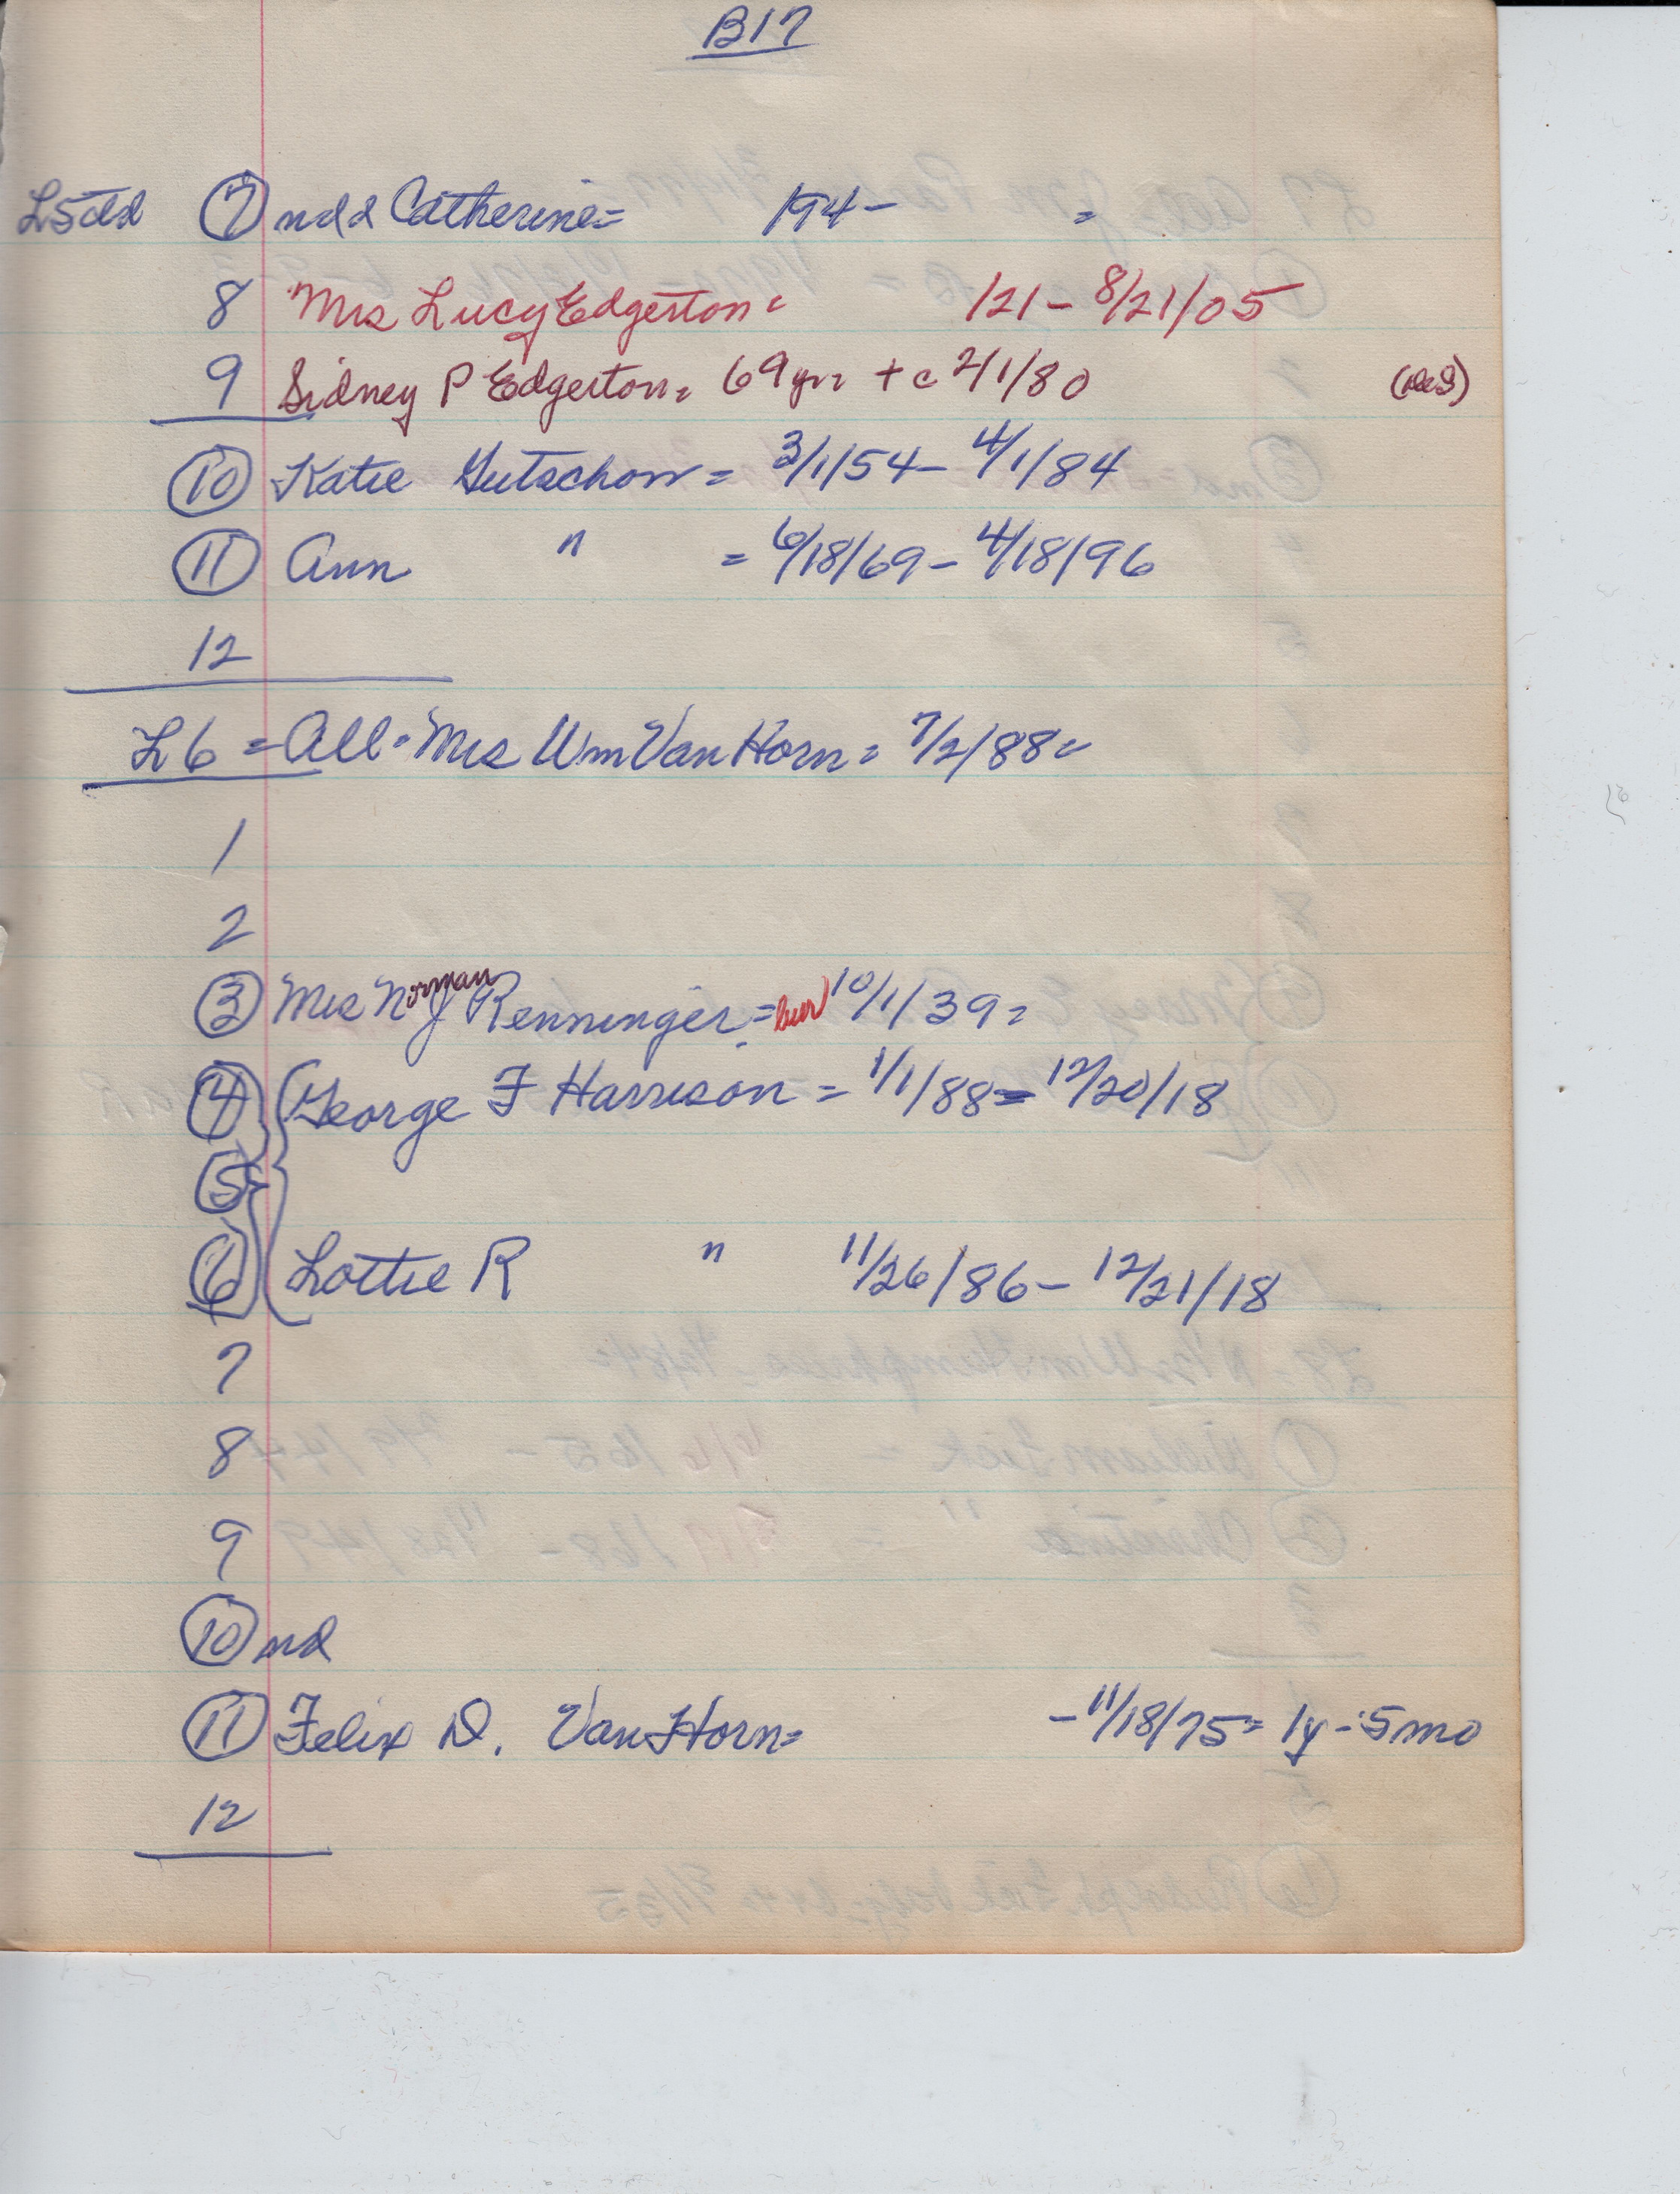 B17
L5 ⑦ ndd Catherine= 194- =
8 Mrs Lucy Edgerton= 121- 8/21/05
9 Sidney P Edgerton= 69yrs + c 2/1/80
⑩ Katie Gutschow = 3/1/54- 4/1/84
⑪ Ann " = 6/18/69- 4/18/96
12
L6 = All - Mrs Wm Van Horn = 7/2/88=
1
2
③ Mrs Norman J Renninger = bur 10/1/39=
④ George F Harrison = 1/1/88= 12/20/18
⑤
⑥ Lottie R " 11/26/86- 12/21/18
7
8
9
⑩ nd
⑪ Felix D. Van Horn= -11/18/75= 1y-5mo
12